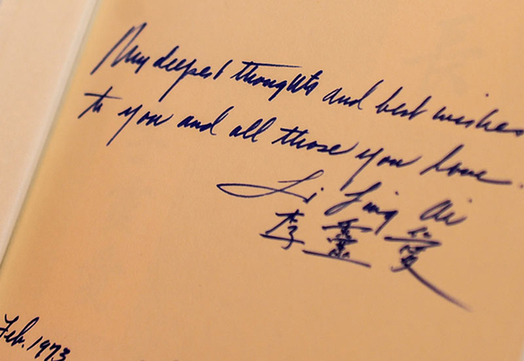 My deepest thoughts and best wishes
to you and all those you love.
Li Ling Ai
李靈愛
Feb. 1973